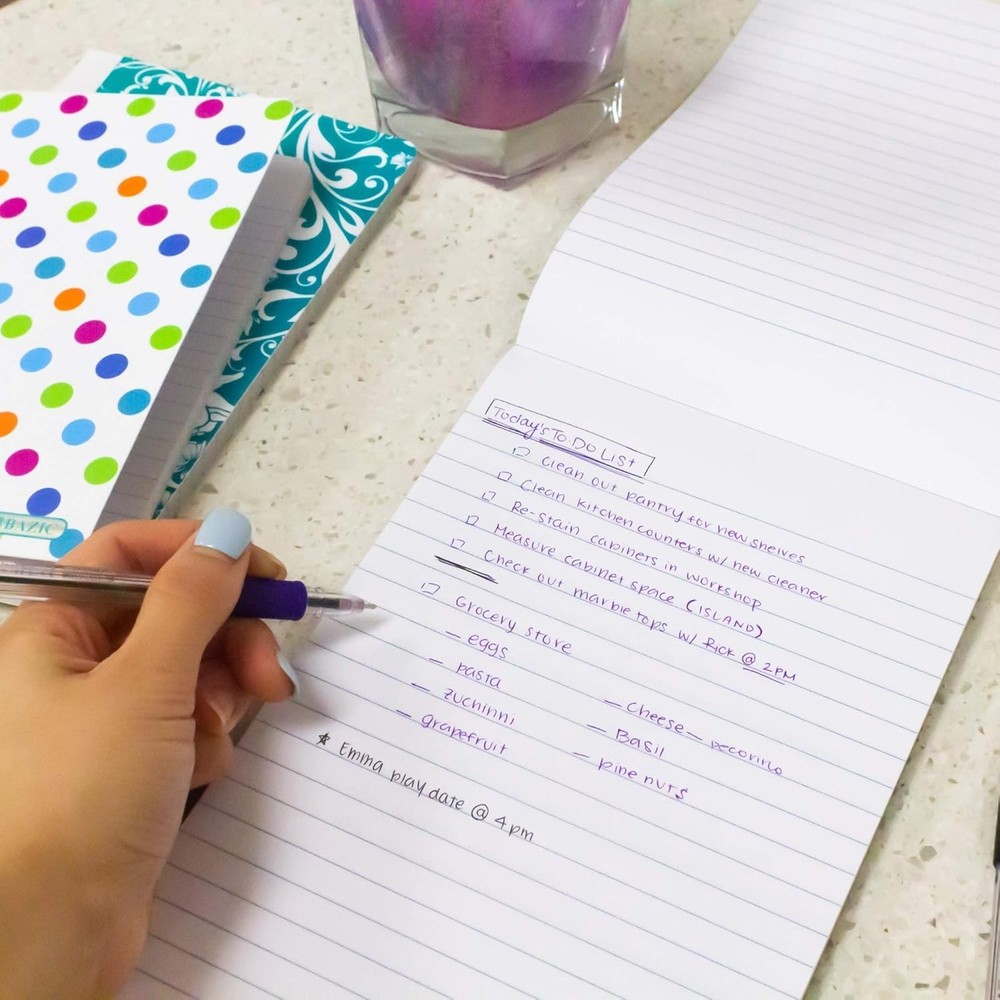 BAZIC
Today's To Do List
Clean out pantry for new shelves
Clean kitchen counters w/ new cleaner
Re-stain cabinets in workshop
Measure cabinet space (ISLAND)
Check out marble tops w/ Rick @ 2PM
Grocery store
- eggs
- pasta
- zuchinni
- grapefruit
- cheese - pecorino
- Basil
- pine nuts
★ Emma play date @ 4 pm